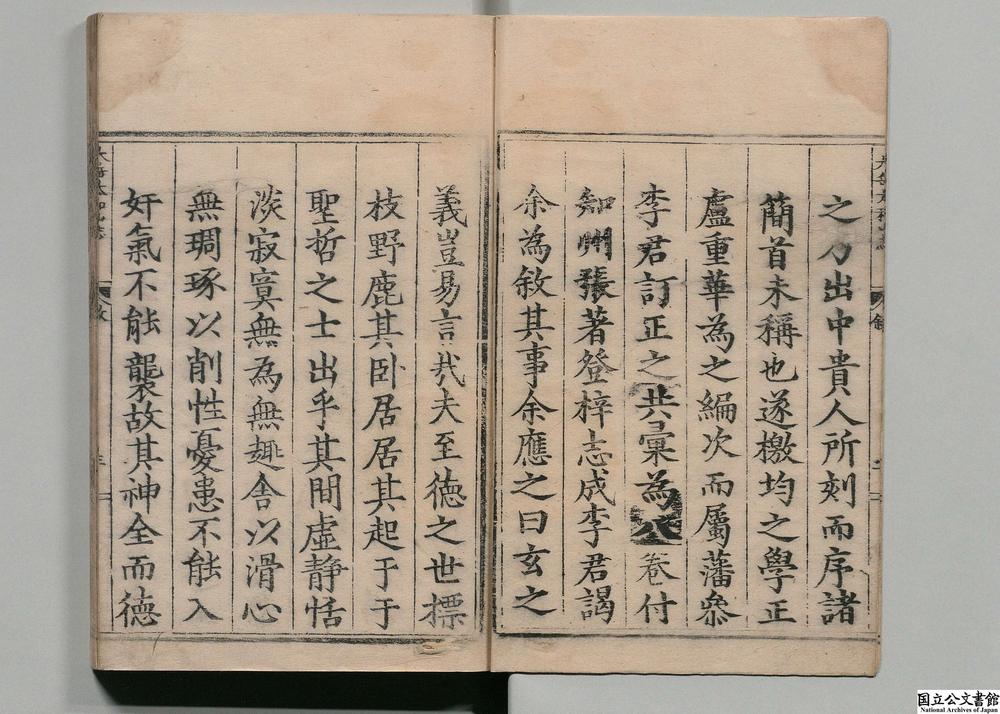 之力出中貴人所刻而序諸
簡首未稱也遂檄均之學正
盧重華為之編次而屬藩叅
李君訂正之共彙為八卷付
知州張著登梓志成李君謁
余為敘其事余應之曰玄之
義豈易言哉夫至德之世摽
枝野鹿其卧居居其起于于
聖哲之士出乎其間虛靜恬
淡寂寞無為無趣舍以滑心
無琱琢以削性憂患不能入
奸氣不能襲故其神全而德
国立公文書館
National Archives of Japan